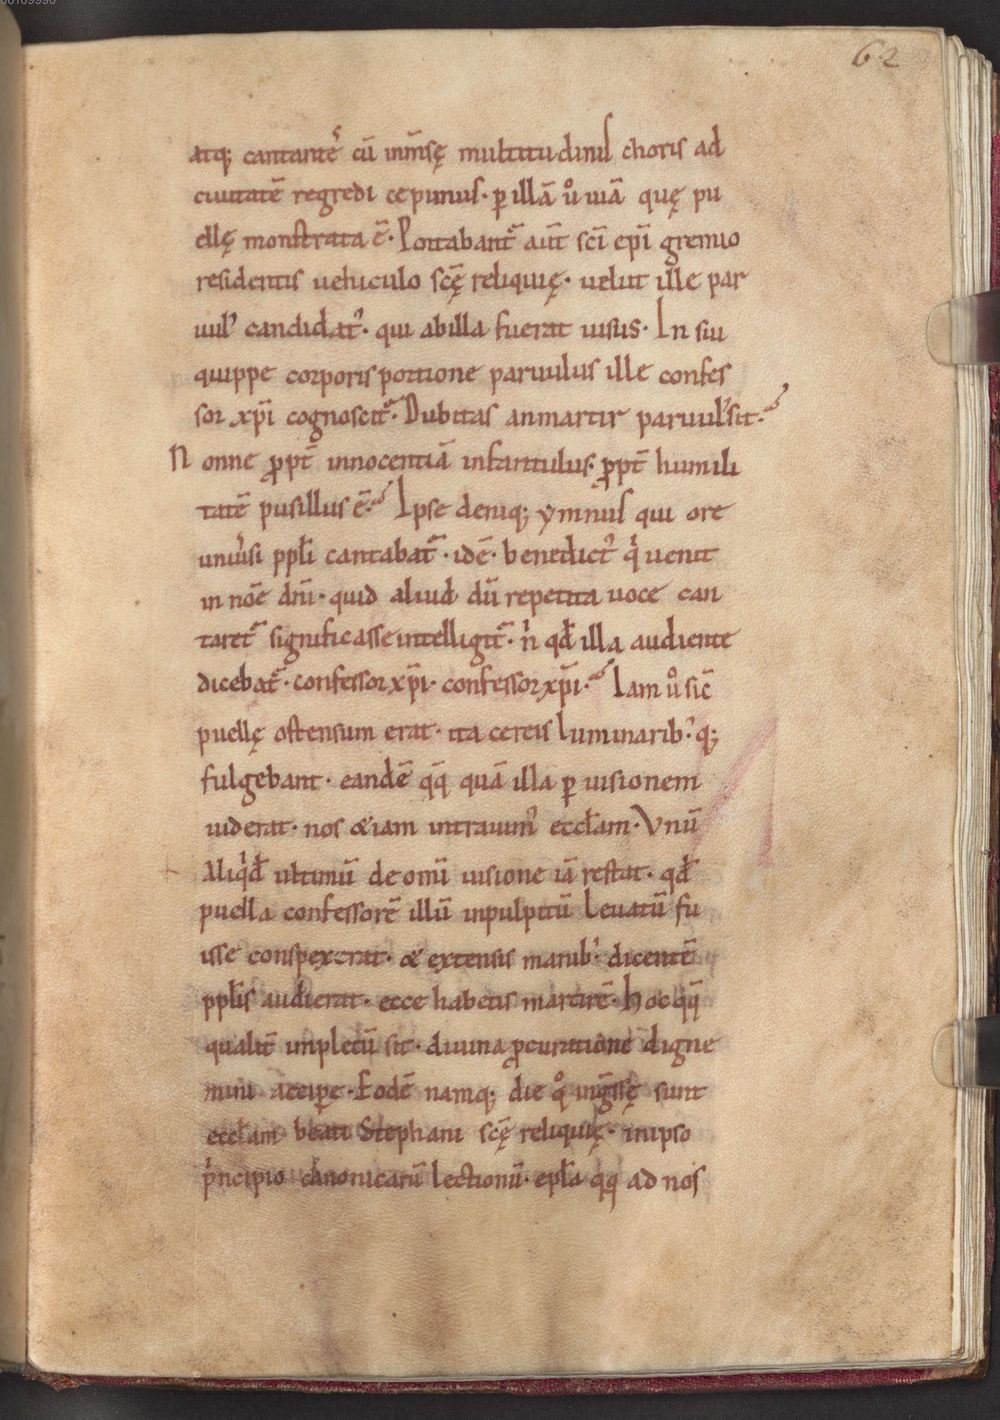 00109990
62
atq; cantantẽˢ cũ inm̃sę multitudinis choris ad
ciuitatẽ regredi cepimus· ꝑ illã ů uiã quę pu
ellę monstrata ẽ· Portabant᷑ aut̃ sc̃i ep̃i gremio
residentis uehiculo sc̃ę reliquię· uelut ille par
uul᾽ candidat᾽· qui ab illa fuerat uisus· In sui
quippe corporis portione paruulus ille confes
sor xp̃i cognoscit᷑· Dubitas an martir paruul᾽ sit·
Nonne ꝓpt̃ innocentiã infantulus· ꝓpt̃ humili
tatẽ pusillus ẽ· Ipse deniq; ymnus qui ore
uniũsi ppl̃i cantabat᷑· idẽ· benedict᾽ qͥ uenit
in nõe dñi· quid aliud dũ repetita uoce can
taret᷑ significasse intelligit᷑· ñ qđ illa audiente
dicebat᷑· confessor xp̃i· confessor xp̃i· Iam ů sic̃
puellę ostensum erat· ita cereis luminarib᾽ q;
fulgebant· eandẽ qq̃ quã illa ꝑ uisionem
uiderat· nos &iam intrauim᾽ eccl̃am· Vnũ
Aliqͥđ ultimũ de omĩ uisione iã restat· qđ
puella confessorẽ illũ in pulpitũ leuatũ fu
isse conspexerat· & extensis manib᾽ dicentẽ
ppl̃is audierat· ecce habetis martirẽ· hoc qq̃
qualit̃ impletũ sit· diuina ꝓcuratione digne
mini accipe· Eodẽ namq; die qͦ ing̃ssę sunt
eccl̃am beati Stephani sc̃ę reliquię· in ipso
pͥncipio canonicarũ lectionũ· epl̃a qq̃ ad nos